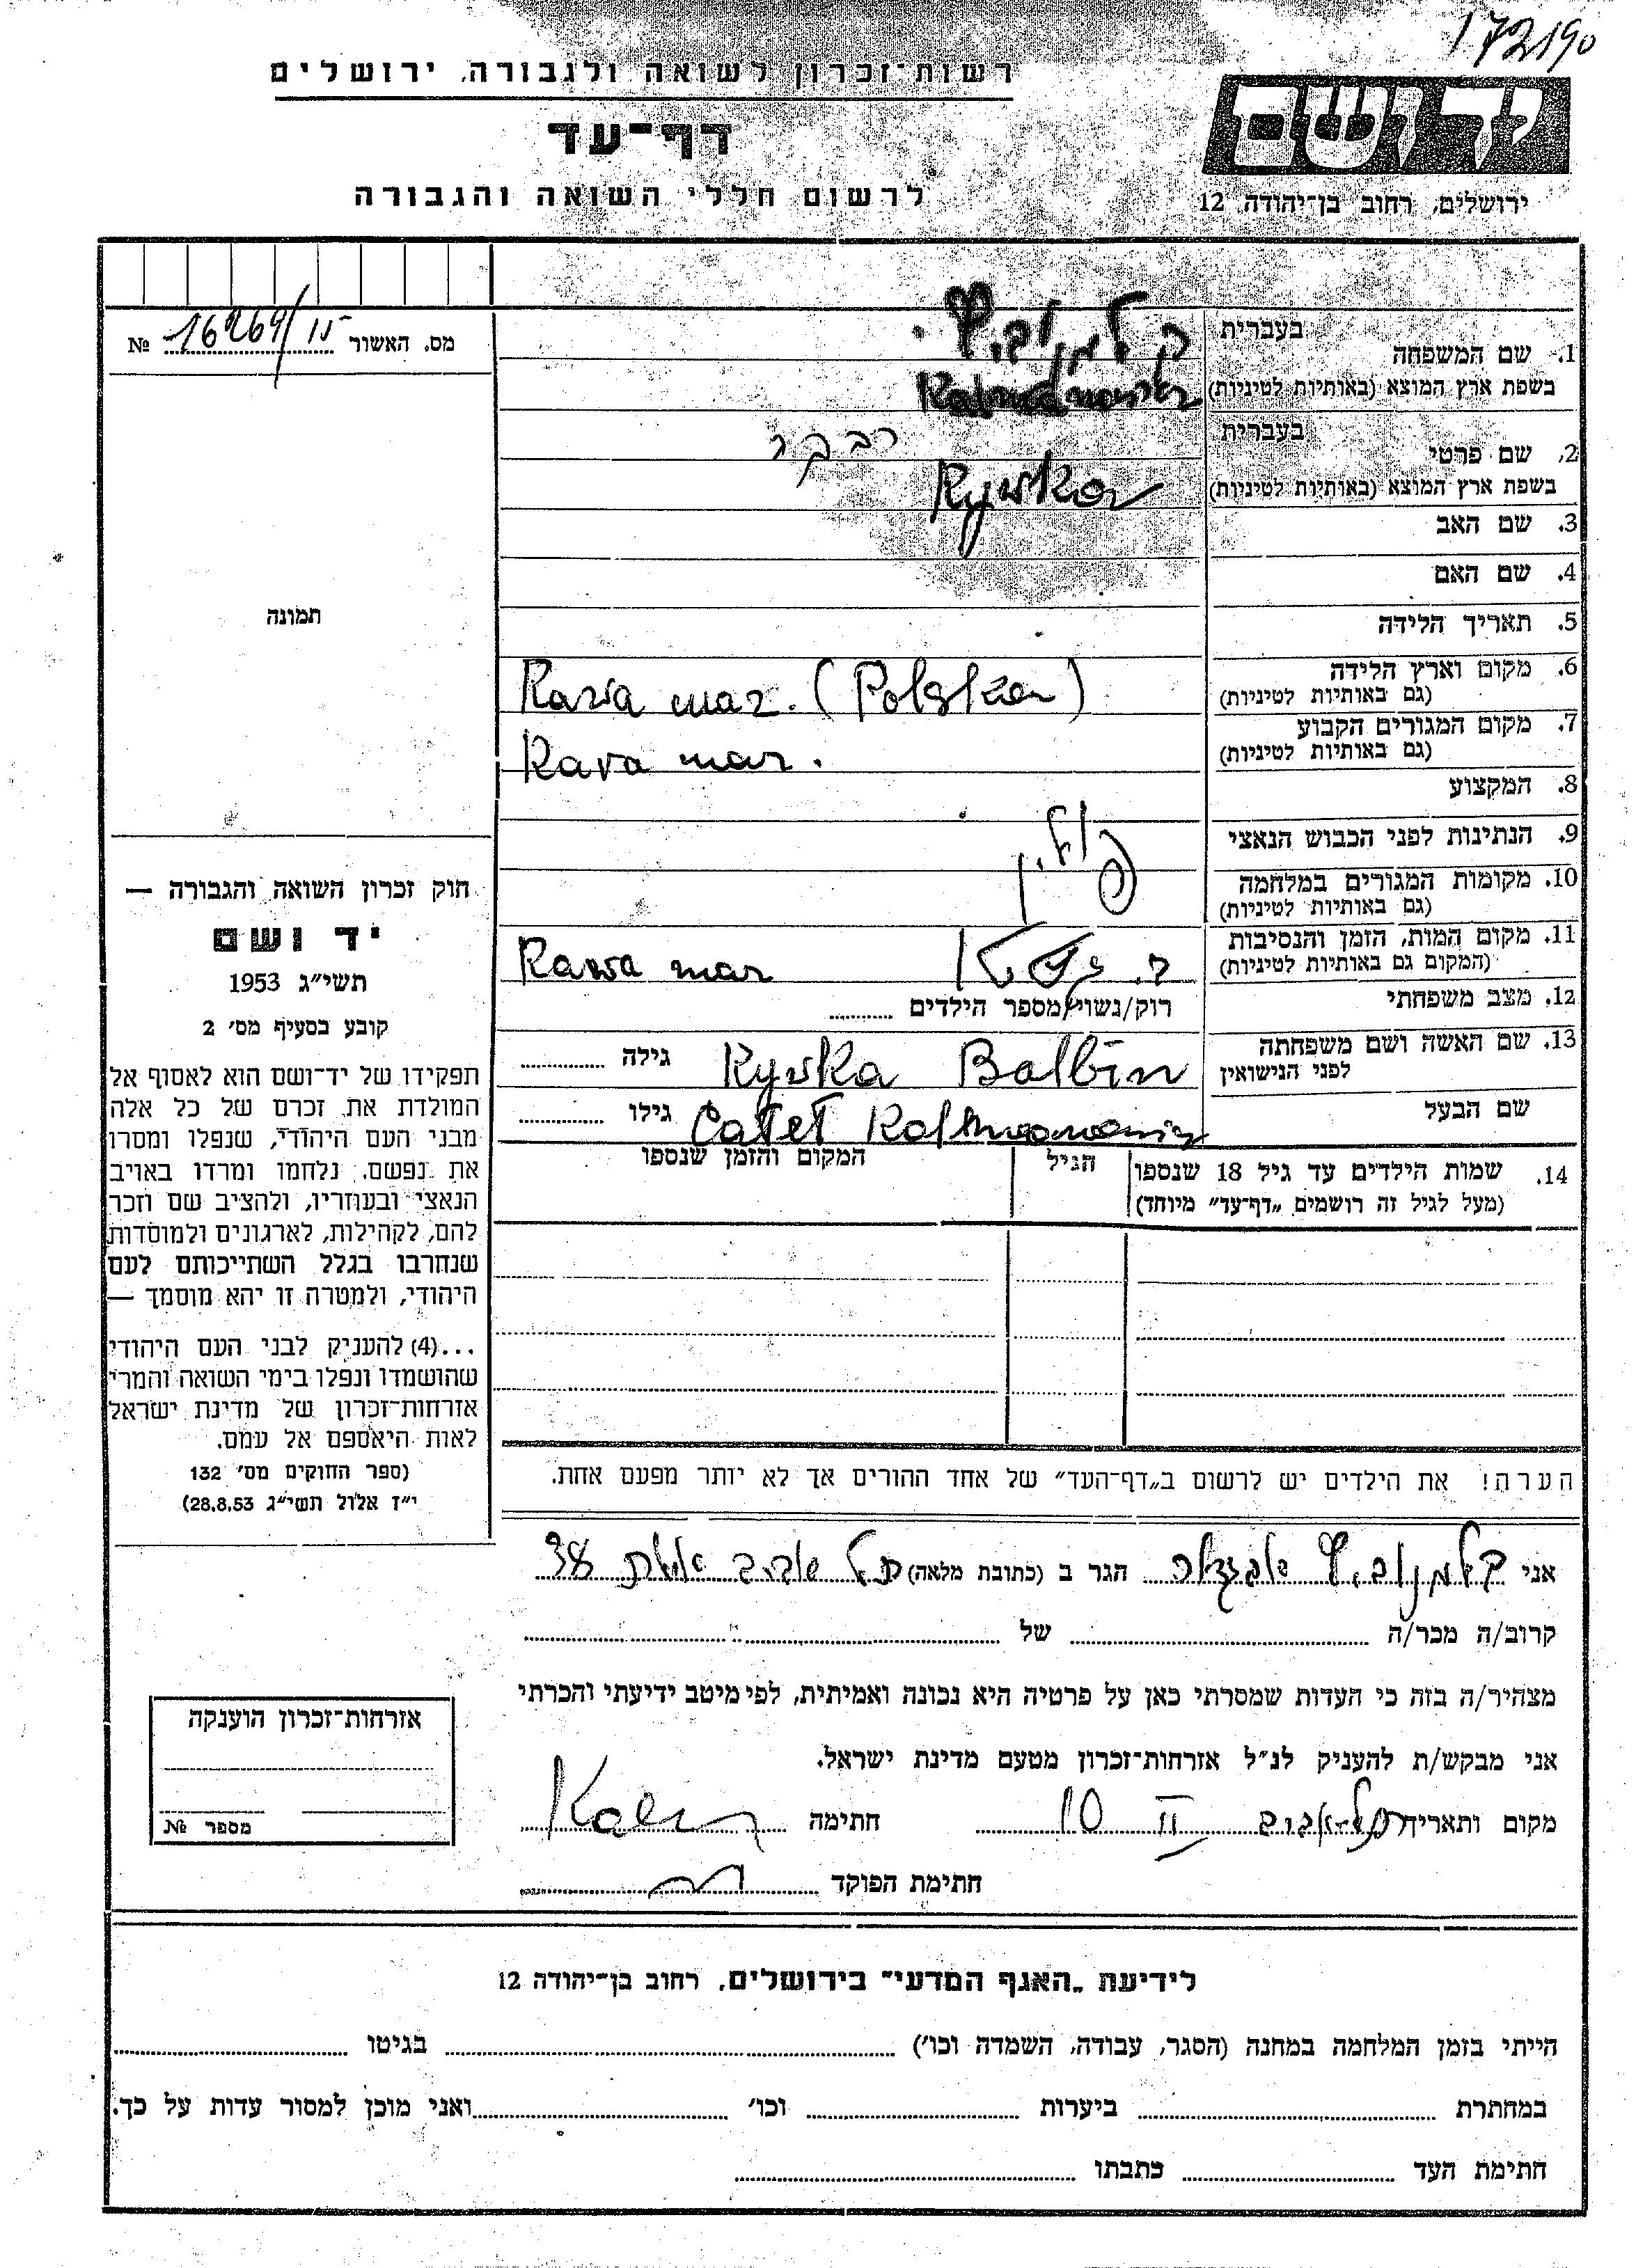 172190
רשות־זכרון לשואה ולגבורה, ירושלים
דף־עד
לרשום חללי השואה והגבורה
יד ושם
ירושלים, רחוב בן־יהודה 12
מס. האשור № 16269/
1. שם המשפחה
בעברית
בשפת ארץ המוצא (באותיות לטיניות)
2. שם פרטי
בעברית רבקה
בשפת ארץ המוצא (באותיות לטיניות) Rywka
3. שם האב
4. שם האם
5. תאריך הלידה
6. מקום וארץ הלידה
(גם באותיות לטיניות) Rawa maz. (Polska)
7. מקום המגורים הקבוע
(גם באותיות לטיניות) Rava maz.
8. המקצוע
9. הנתינות לפני הכבוש הנאצי פולין
10. מקומות המגורים במלחמה
(גם באותיות לטיניות)
11. מקום המות, הזמן והנסיבות
(המקום גם באותיות לטיניות) Rawa maz
12. מצב משפחתי רוק/נשוי/מספר הילדים
13. שם האשה ושם משפחתה
לפני הנישואין Rywka Balbin גילה
שם הבעל גילו
14. שמות הילדים עד גיל 18 שנספו
(מעל לגיל זה רושמים „דף־עד" מיוחד)
הגיל
המקום והזמן שנספו
הערה! את הילדים יש לרשום ב„דף־העד" של אחד ההורים אך לא יותר מפעם אחת.
תמונה
חוק זכרון השואה והגבורה —
יד ושם
תשי"ג 1953
קובע בסעיף מס׳ 2
תפקידו של יד־ושם הוא לאסוף אל
המולדת את זכרם של כל אלה
מבני העם היהודי, שנפלו ומסרו
את נפשם, נלחמו ומרדו באויב
הנאצי ובעוזריו, ולהציב שם וזכר
להם, לקהילות, לארגונים ולמוסדות
שנחרבו בגלל השתייכותם לעם
היהודי, ולמטרה זו יהא מוסמך —
...(4) להעניק לבני העם היהודי
שהושמדו ונפלו בימי השואה והמרי
אזרחות־זכרון של מדינת ישראל
לאות היאספם אל עמם.
(ספר החוקים מס׳ 132
י"ז אלול תשי"ג 28.8.53)
אני קלמנוביץ הגר ב (כתובת מלאה) תל אביב 38
קרוב/ה מכר/ה של
מצהיר/ה בזה כי העדות שמסרתי כאן על פרטיה היא נכונה ואמיתית, לפי מיטב ידיעתי והכרתי
אני מבקש/ת להעניק לנ"ל אזרחות־זכרון מטעם מדינת ישראל.
מקום ותאריך תל־אביב 10 II חתימה
חתימת הפוקד
אזרחות־זכרון הוענקה
מספר №
לידיעת „האגף המדעי" בירושלים, רחוב בן־יהודה 12
הייתי בזמן המלחמה במחנה (הסגר, עבודה, השמדה וכו׳) בגיטו
במחתרת ביערות וכו׳ ואני מוכן למסור עדות על כך.
חתימת העד כתבתו